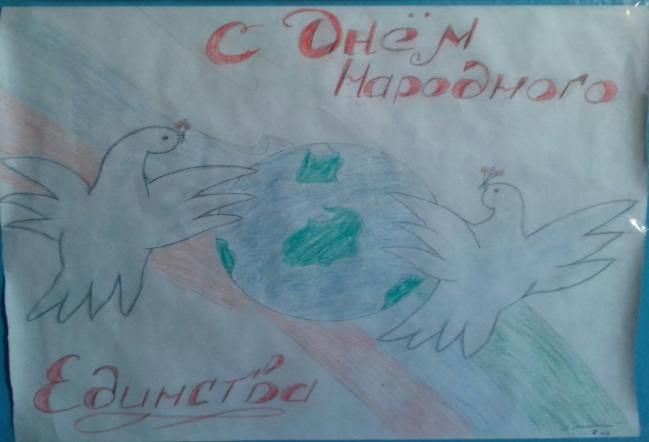 С Днём
Народного
Единства